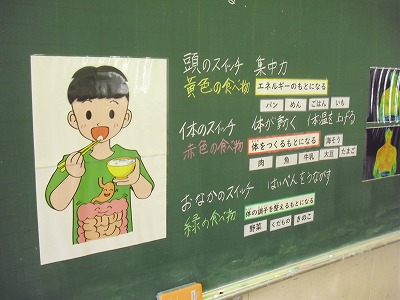 頭のスイッチ 集中力
黄色の食べ物 エネルギーのもとになる
パン めん ごはん いも
体のスイッチ 体が動く 体温を上げる
赤色の食べ物 体をつくるもとになる 海そう
肉 魚 牛乳 大豆 たまご
おなかのスイッチ はいべんをうながす
緑の食べ物 体の調子を整えるもとになる
野菜 くだもの きのこ